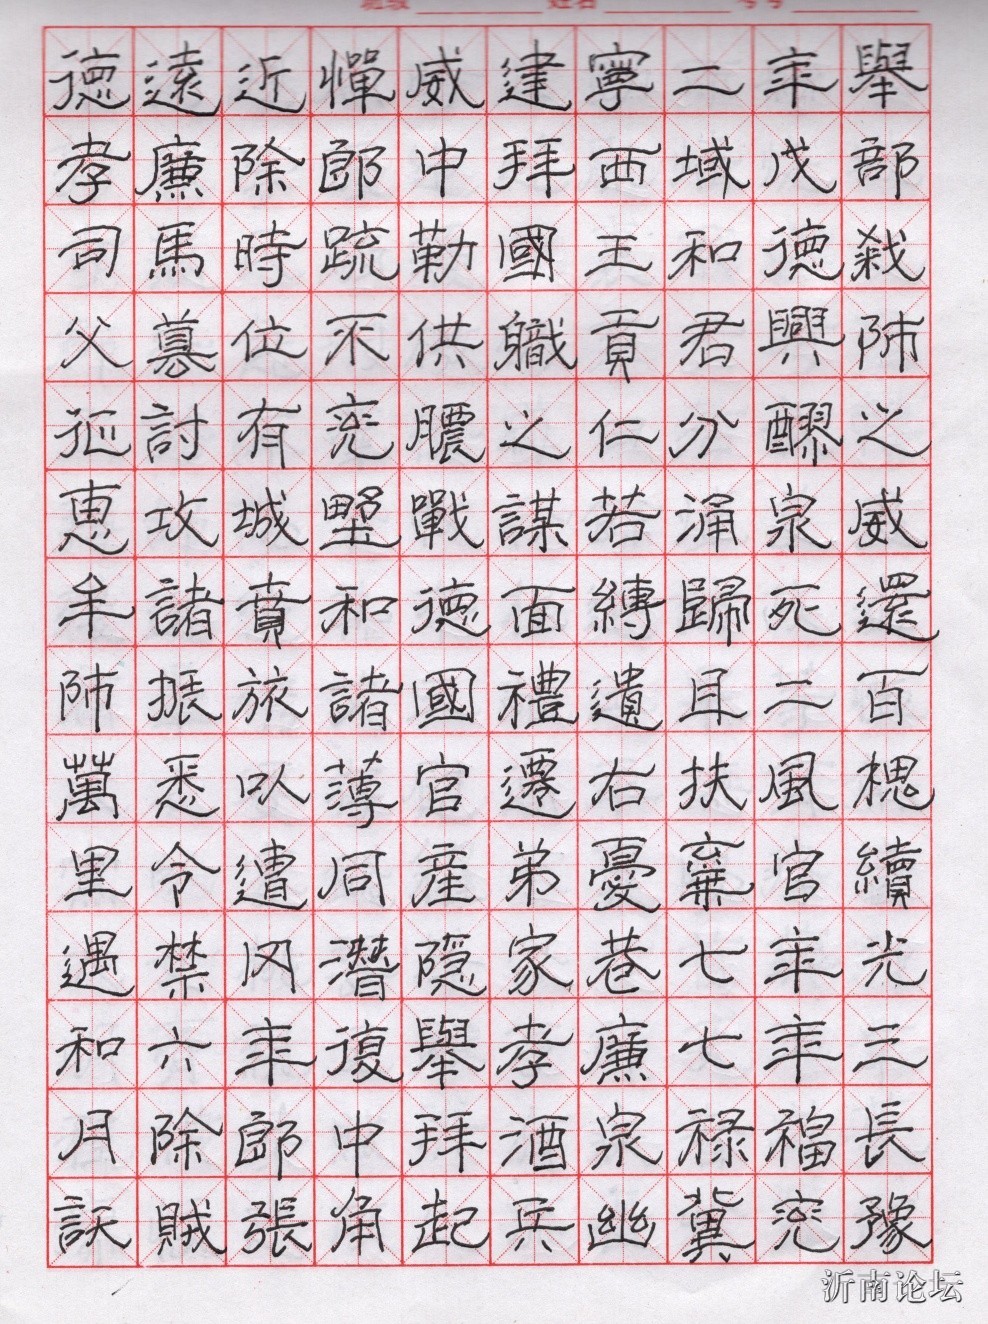 班级 姓名
德遠近憚威建寧二年舉
孝廉除郎中拜西域戊部
司馬時疏勒國王和德弒
父篡位不供職貢君興師
征討有兗膿之仁分醪之
惠攻城野戰謀若涌泉威
牟諸賁和德面縛歸死還
師振旅諸國禮遺且二百
萬悉以薄官遷右扶風槐
里令遭同產弟憂棄官續
遇禁冈潛隱家巷七年光
和六年復舉孝廉七年三
月除郎中拜酒泉祿福長
訞賊張角起兵幽冀兗豫
沂南论坛